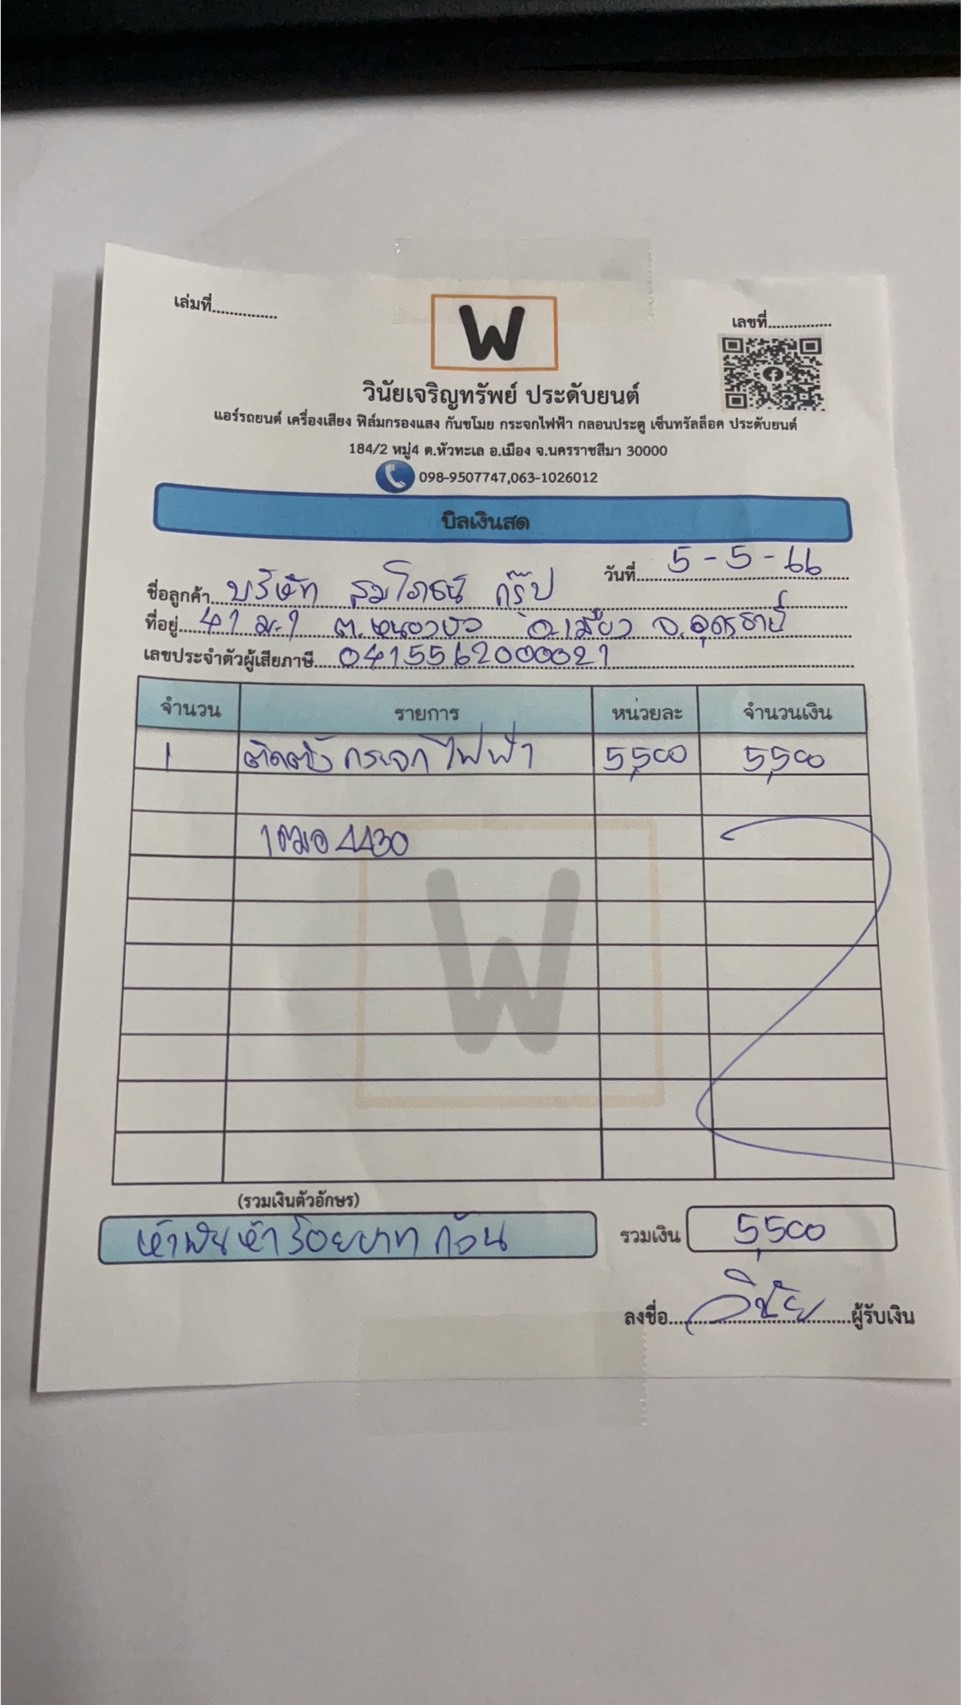 เล่มที่..............
W
เลขที่..............
วินัยเจริญทรัพย์ ประดับยนต์
แอร์รถยนต์ เครื่องเสียง ฟิล์มกรองแสง กันขโมย กระจกไฟฟ้า กลอนประตู เซ็นทรัลล็อค ประดับยนต์
184/2 หมู่4 ต.หัวทะเล อ.เมือง จ.นครราชสีมา 30000
098-9507747,063-1026012
บิลเงินสด
วันที่ 5-5-66
ชื่อลูกค้า บริษัท สมโภชน์ กรุ๊ป
ที่อยู่ 41 ม.1 ต.หนองบัว อ.เมือง จ.อุดรธานี
เลขประจำตัวผู้เสียภาษี 0415562000021
จำนวน รายการ หน่วยละ จำนวนเงิน
1 ติดตั้ง กระจกไฟฟ้า 5,500 5,500
1ฒอ 4430
W
(รวมเงินตัวอักษร)
ห้าพันห้าร้อยบาทถ้วน รวมเงิน 5,500
ลงชื่อ วินัย ผู้รับเงิน